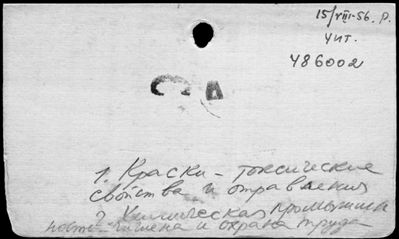 15/VIII-56. р.
Чит.
486002
СА
1. Краски - токсические
свойства и отравления
2. Химическая промышлен
ность - гигиена и охрана труда